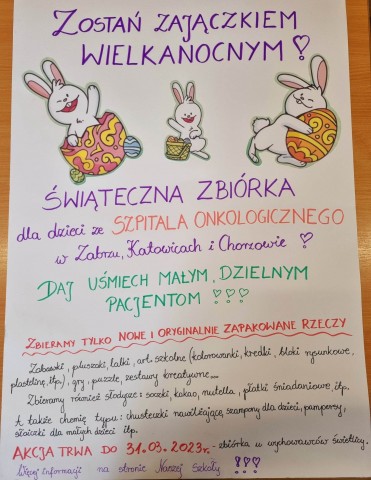 Zostań zajączkiem
wielkanocnym ! ♡
Świąteczna zbiórka
dla dzieci ze SZPITALA ONKOLOGICZNEGO
w Zabrzu, Katowicach i Chorzowie ♡
Daj uśmiech małym, dzielnym
pacjentom ! ! !
Zbieramy tylko NOWE I ORYGINALNIE ZAPAKOWANE RZECZY
Zabawki, pluszaki, lalki, art. szkolne (kolorowanki, kredki, bloki rysunkowe,
plastelinę, itp.), gry, puzzle, zestawy kreatywne...
Zbieramy również słodycze: soczki, kakao, nutella, płatki śniadaniowe, itp.
A także chemię typu: chusteczki nawilżające, szampony dla dzieci, pampersy,
słoiczki dla małych dzieci itp.
AKCJA TRWA DO 31.03.2023r. - zbiórka u wychowawców świetlicy.
Więcej informacji na stronie Naszej Szkoły ! ! !